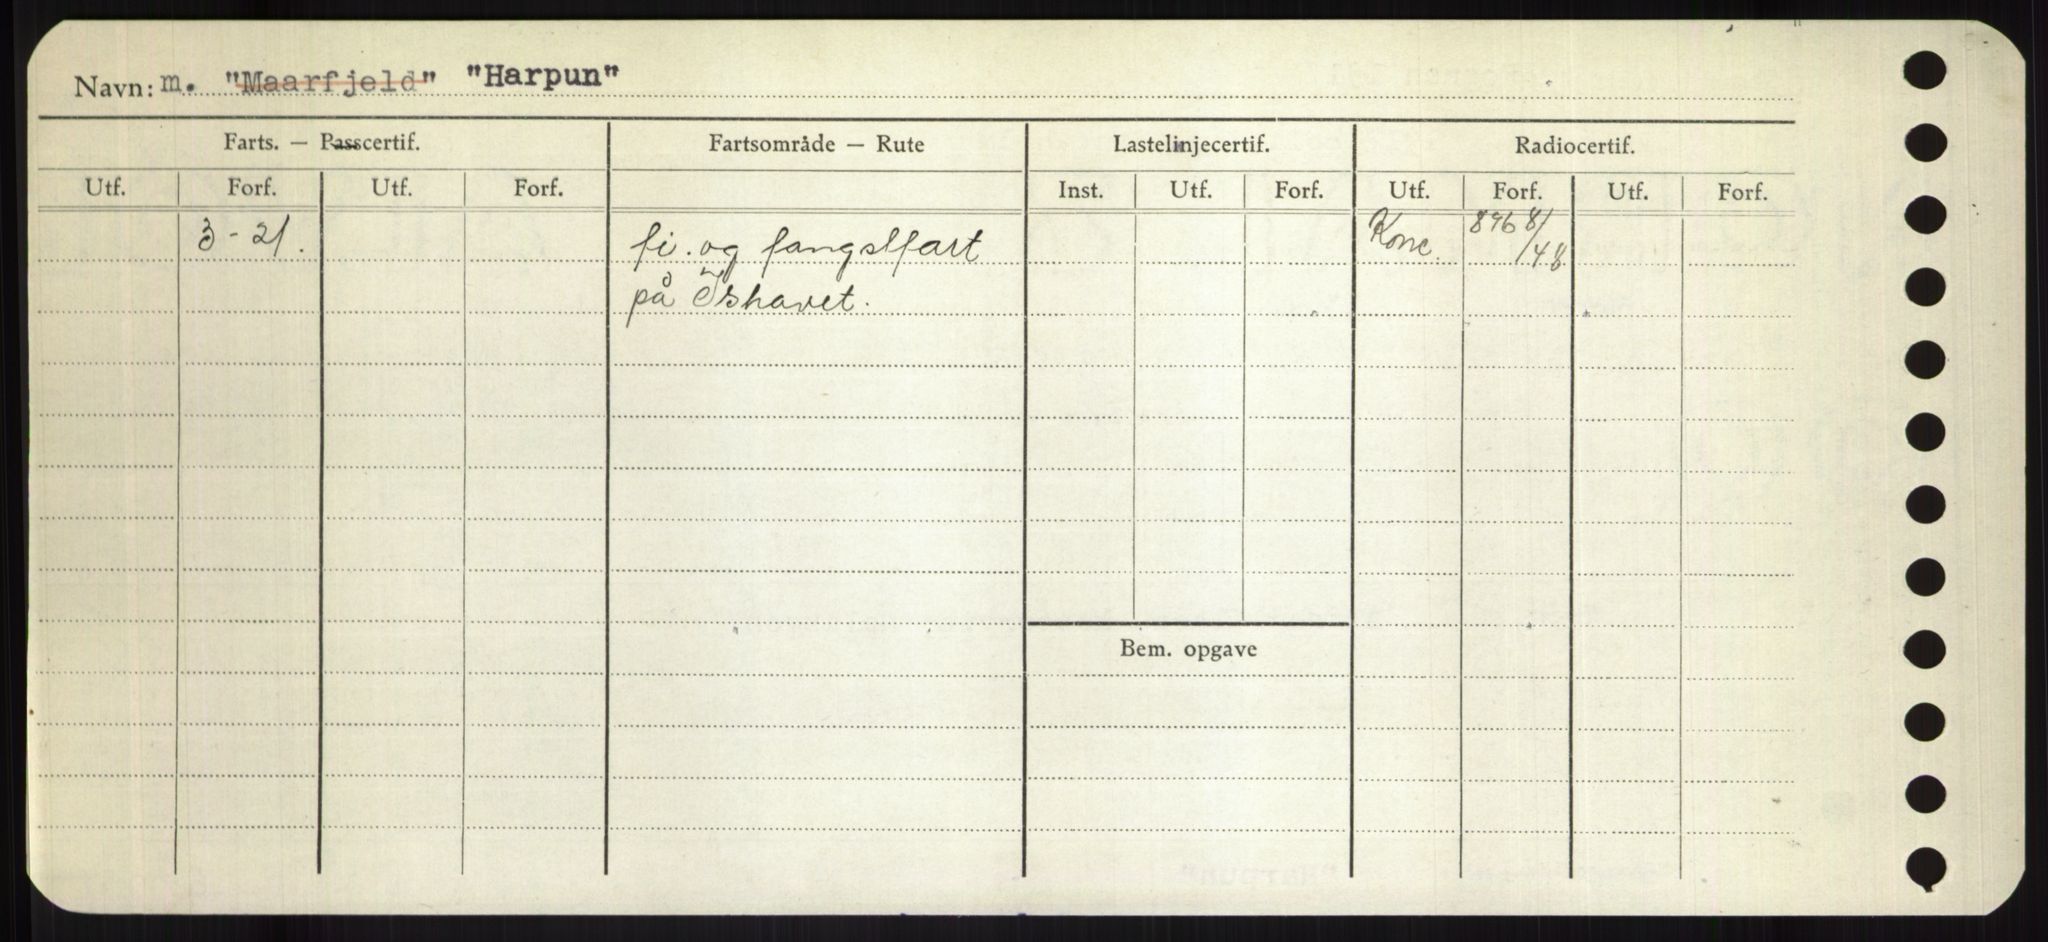 Navn: m. "Maarfjeld" "Harpun"
Farts. — Passcertif. Fartsområde — Rute Lastelinjecertif. Radiocertif.
Utf. Forf. Utf. Forf. Inst. Utf. Forf. Utf. Forf. Utf. Forf.
3-21. fi. og fangstfart Konc. 896 8/
på Ishavet. /48
Bem. opgave